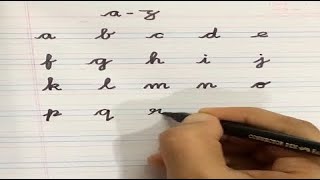 a-z
a b c d e
f g h i j
k l m n o
p q r